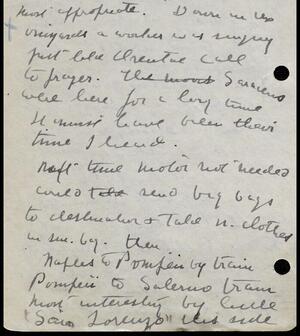 most appropriate. Down in
vineyards a worker was singing
just like Oriental call
to prayer. The moors Saracens
were here for a long time
It must have been their
time I heard.
Next time motor not needed
could take send big bags
to destination & take n. clothes
in sm. bag. then
Naples to Pompeii by train
Pompeii to Salerno train
most interesting by little
"San Lorenzo" this side